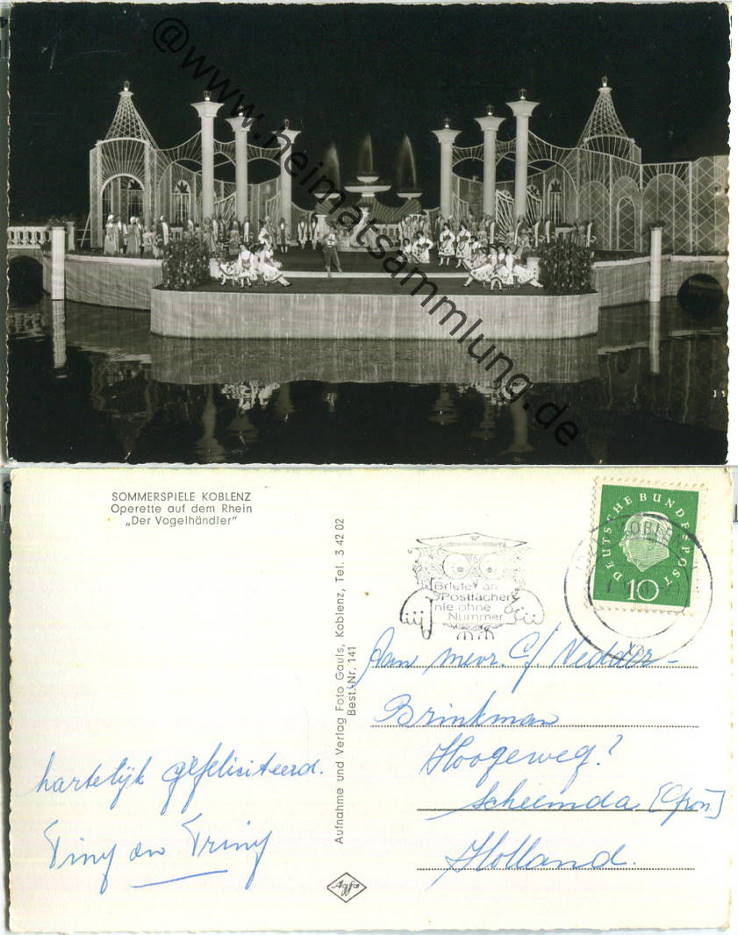 @www.heimatsammlung.de
SOMMERSPIELE KOBLENZ
Operette auf dem Rhein
„Der Vogelhändler"
Aufnahme und Verlag Foto Gauls, Koblenz, Tel. 3 42 02
Best.-Nr. 141
Briefe an
Postfächer
nie ohne
Nummer
DEUTSCHE BUNDESPOST
10
KOBLENZ
Aan mevr. C/ Nedder-
Brinkman
Hoogeweg?
Scheemda [Gron]
Holland.
hartelijk gefeliciteerd.
Tiny en Triny
Agfa